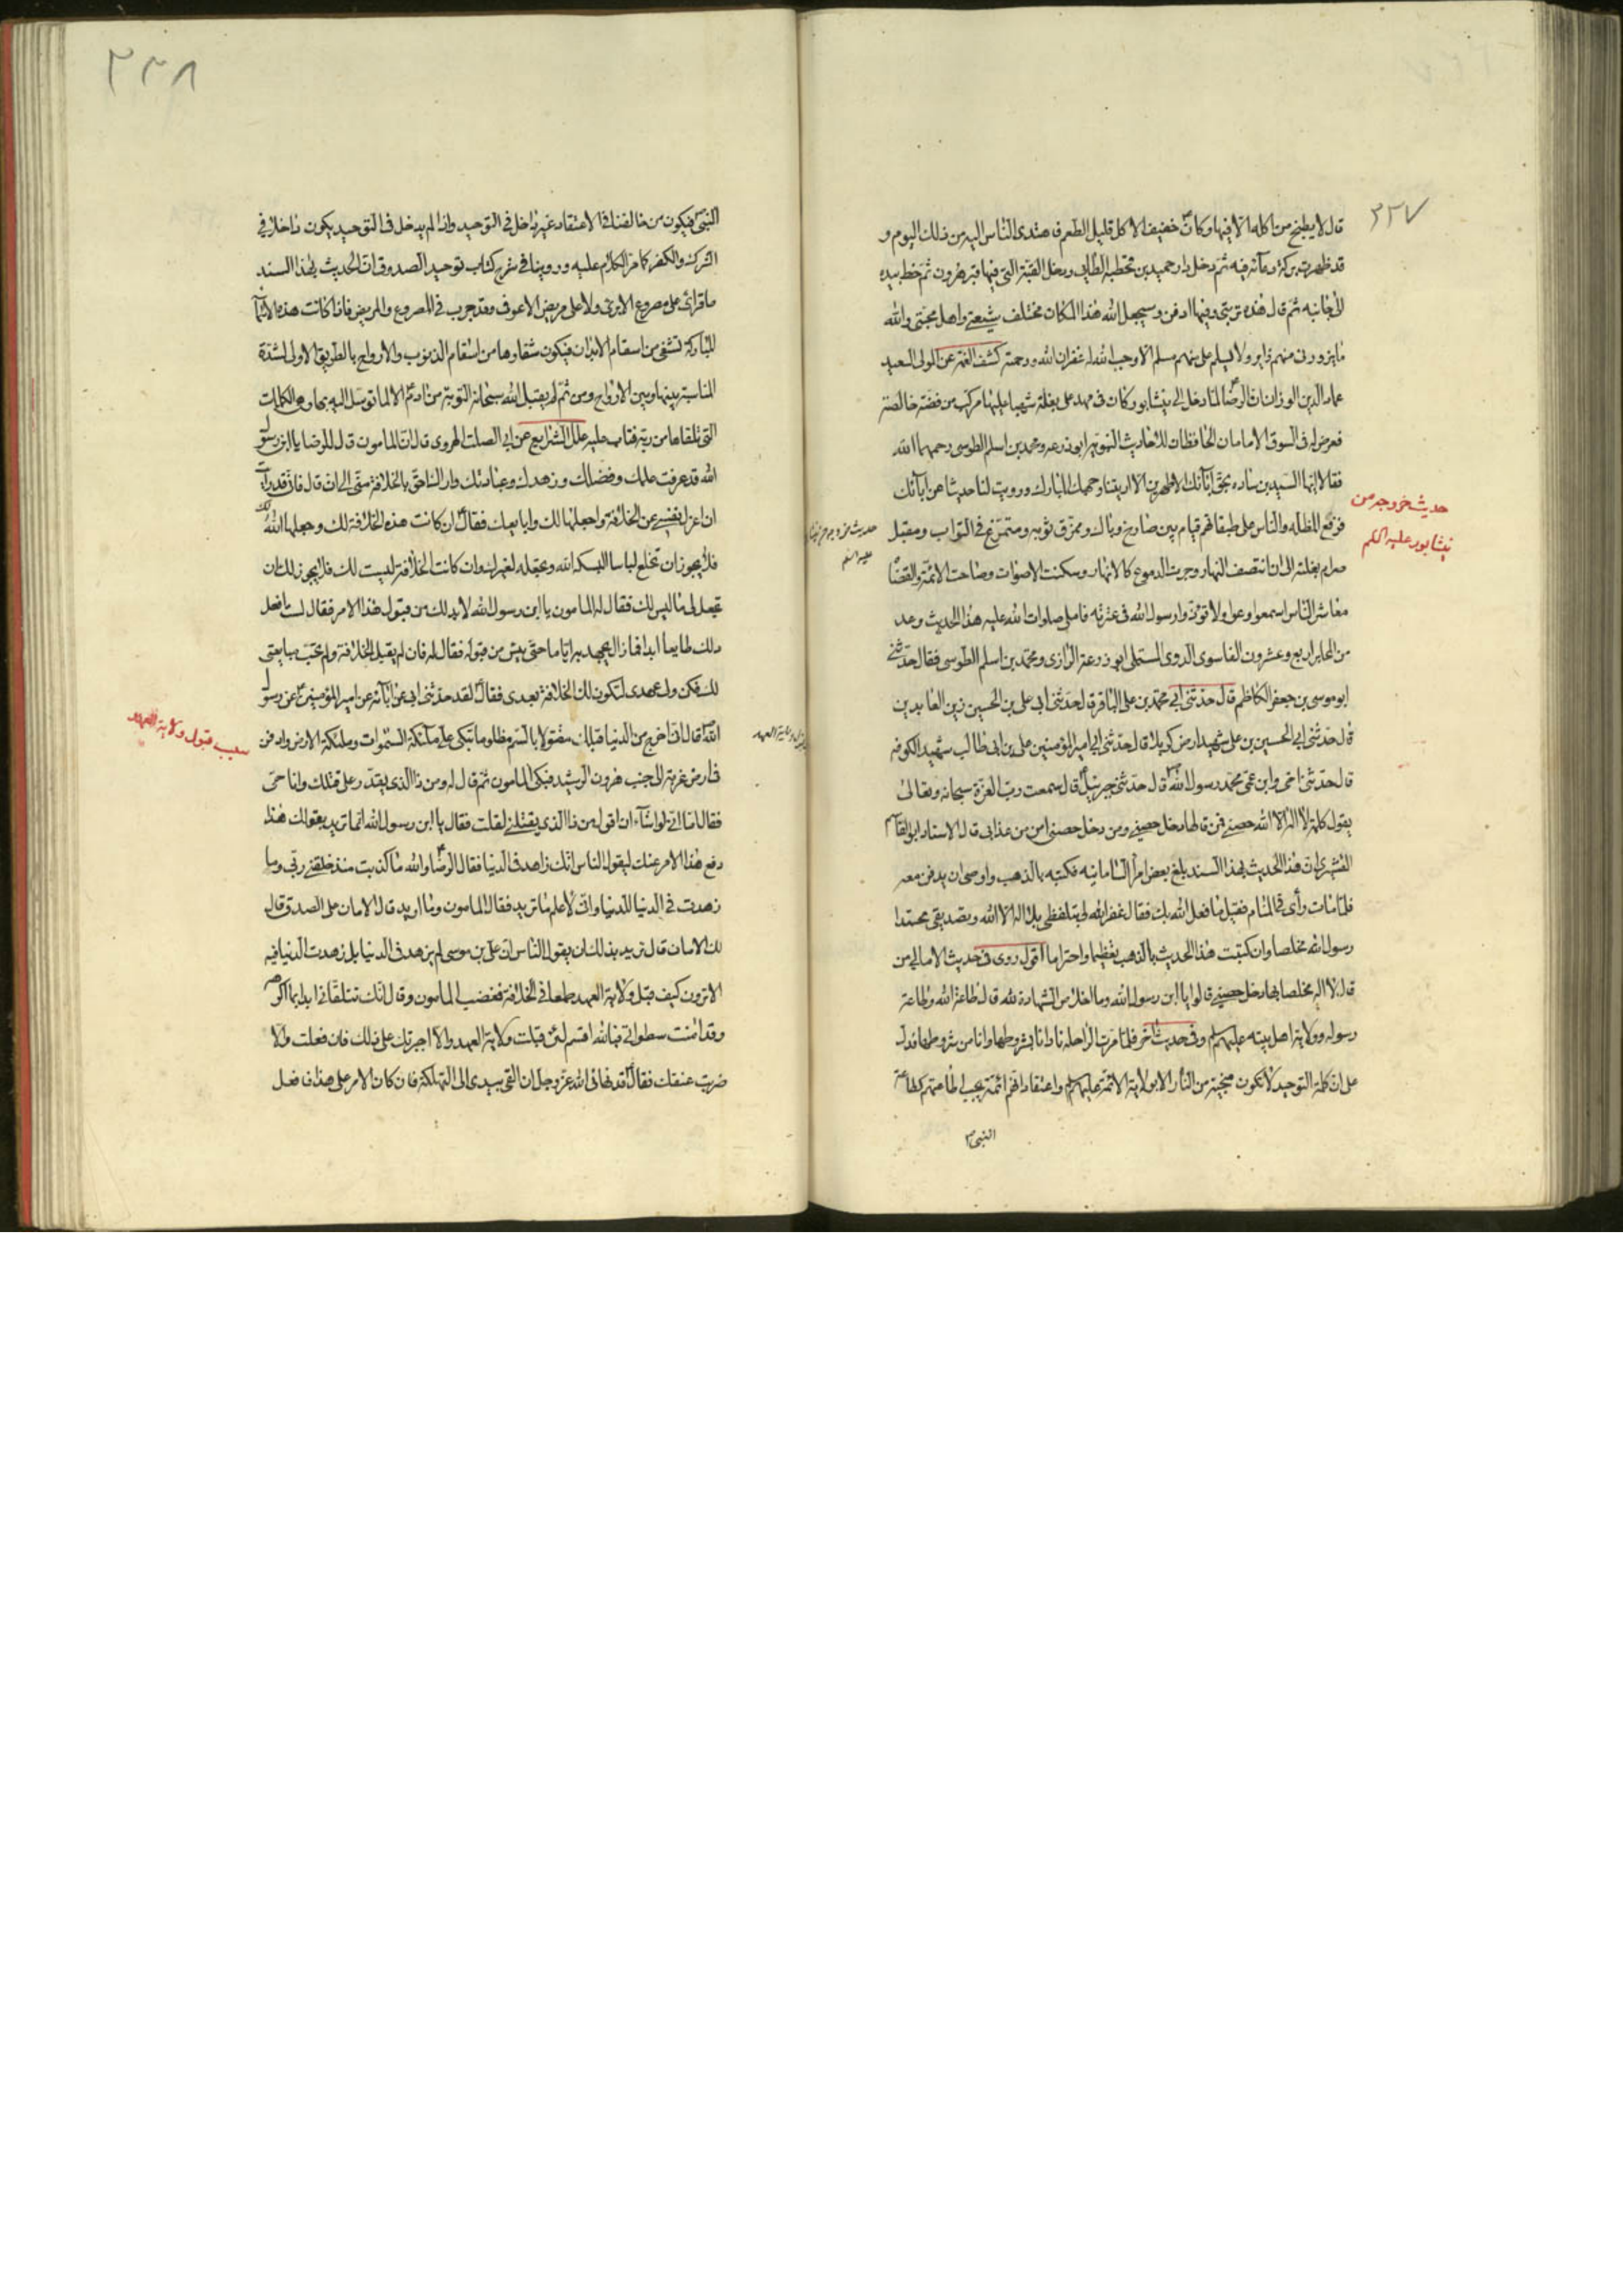 ٣٢٧
قال لا يطبخ من ماكله الا فيها وكان خفيف الاكل قليل الطعم فاهتدى الناس اليه من ذلك اليوم و
قد ظهرت بركة دعائه فيه ثم دخل دار حميد بن قحطبة الطايى ودخل القبة التى فيها قبر هرون ثم خط بيده
الى جانبه ثم قال هذه تربتى وفيها ادفن وسيجعل الله هذا المكان مختلف شيعتى واهل محبتى والله
ما يزورنى منهم زاير ولا يسلم على منهم مسلم الا وجب الله له غفران الله ورحمته كشف الغمة عن المولى السعيد
عماد الدين الوزان ان الرضا لما دخل الى نيشابور كان فى مهد على بغلة شهبا عليها مركب من فضة خالصة
فعرض له فى السوق الامامان الحافظان للاحاديث النبوية ابو زرعه ومحمد بن اسلم الطوسى رحمهما الله
فقالا ايها السيد بن ساده بحق ابائك الاطهرين الا اريتنا وجهك المبارك ورويت لنا حديثا عن ابائك
فرفع المظله والناس على طبقاتهم قيام بين صارخ وباك وممزق ثوبه ومتمرغ فى التراب ومقبل
حزام بغلته الى ان انتصف النهار وجرت الدموع كالانهار وسكنت الاصوات وصاحت الائمة والقضاة
معاشر الناس اسمعوا وعوا ولا تؤذوا رسول الله فى عترته فاملى صلوات الله عليه هذا الحديث وعد
من المحابر اربع وعشرون الفا سوى الدوى المستملى ابو زرعة الرازى ومحمد بن اسلم الطوسى فقال حدثنى
ابى موسى بن جعفر الكاظم قال حدثنى ابى محمد بن على الباقر قال حدثنى ابى على بن الحسين زين العابدين
قال حدثنى ابى الحسين بن على شهيد ارض كربلا قال حدثنى ابى امير المؤمنين على بن ابى طالب شهيد الكوفه
قال حدثنى اخى وابن عمى محمد رسول الله قال حدثنى جبرئيل قال سمعت رب العزة سبحانه وتعالى
يقول كلمة لا اله الا الله حصنى فمن قالها دخل حصنى ومن دخل حصنى امن من عذابى قال الاستاد ابو القاسم
القشيرى ان هذا الحديث بهذا السند بلغ بعض امرأ السامانيه فكتبه بالذهب واوصى ان يدفن معه
فلما مات رأى فى المنام فقيل ما فعل الله بك فقال غفر الله لى بتلفظى بلا اله الا الله وتصديقى محمدا
رسول الله مخلصا وان كتبت هذا الحديث بالذهب تعظيما واحتراما اقول روى فى حديث الامالى من
قال لا اله مخلصا بها دخل حصنى قالوا يا ابن رسول الله وما اخلاص الشهادة لله قال طاعة الله وطاعة
رسوله وولاية اهل بيته عليهم السلم وفى حديث اخر فلما مرت الراحلة نادانا بشروطها وانا من شروطها فدل
على ان كلمة التوحيد لا تكون منجية من النار الا بولاية الائمة عليهم السلم واعتقاد انهم ائمة يجب طاعتهم كطاعة
النبى
حديث خروجه من
نيشابور عليه السلم
حديث خروجه من
عليه السلم
٣٢٨
النبى فيكون من خالفنا فى الاعتقاد غير داخل فى التوحيد واذا لم يدخل فى التوحيد يكون داخلا فى
الشرك والكفر كما مر الكلام عليه وروينا فى شرح كتاب توحيد الصدوق ان الحديث بهذا السند
ما قرائ على مصروع الا برئ ولا على مريض الا عوفى وقد جرب فى المصروع والمريض فاذا كانت هذه الاسمأ
المباركة تشفى من اسقام الابدان فيكون شفاؤها من اسقام الذنوب والارواح بالطريق الاولى لشدة
المناسبة بينها وبين الارواح ومن ثم لم يقبل الله سبحانه التوبة من ادم الا لما توسل اليه بها وهى الكلمات
التى تلقاها من ربه فتاب عليه علل الشرايع عن ابى الصلت الهروى قال ان المامون قال للرضا يا ابن رسول
الله قد عرفت علمك وفضلك وزهدك وعبادتك واراك احق بالخلافة منى الى ان قال فانى قد رأيت
ان اعزل نفسى عن الخلافة واجعلها لك وابايعك فقال ان كانت هذه الخلافة لك وجعلها الله لك
فلا يجوز ان تخلع لباسا البسكه الله وتجعله لغيرك وان كانت الخلافة ليست لك فلا يجوز لك ان
تجعل لى ما ليس لك فقال له المامون يا ابن رسول الله لا بد لك من قبول هذا الامر فقال لست افعل
ذلك طايعا ابدا فما زال يجهد به اياما حتى يئس من قبوله فقال له فان لم تقبل الخلافة ولم تحب مبايعتى
لك فكن ولى عهدى لتكون لك الخلافة بعدى فقال لقد حدثنى ابى عن ابائه عن امير المؤمنين عن رسول
الله قال انى اخرج من الدنيا قبلك مقتولا بالسم مظلوما تبكى على ملائكة السموات وملئكة الارض وادفن
فى ارض غربة الى جنب هرون الرشيد فبكى المامون ثم قال له ومن ذا الذى يقدر على قتلك وانا حى
فقال اما انى لو اشآء ان اقول من ذا الذى يقتلنى لقلت فقال يا ابن رسول الله انما تريد بقولك هذا
دفع هذا الامر عنك ليقول الناس انك زاهد فى الدنيا فقال الرضا والله ما كذبت منذ خلقنى ربى وما
زهدت فى الدنيا للدنيا وانى لاعلم ما تريد فقال المامون وما اريد قال الامان على الصدق قال
لك الامان قال تريد بذلك ان يقول الناس ان على بن موسى لم يزهد فى الدنيا بل زهدت الدنيا فيه
الا ترون كيف قبل ولاية العهد طمعا فى الخلافة فغضب المامون وقال انك تتلقانى ابدا بما اكره
وقد امنت سطواتى فبالله اقسم لئن قبلت ولاية العهد والا اجبرتك على ذلك فان فعلت والا
ضربت عنقك فقال قد نهانى الله عز وجل ان القى بيدى الى التهلكة فان كان الامر على هذا فافعل
سبب قبول ولاية العهد
ولاية العهد